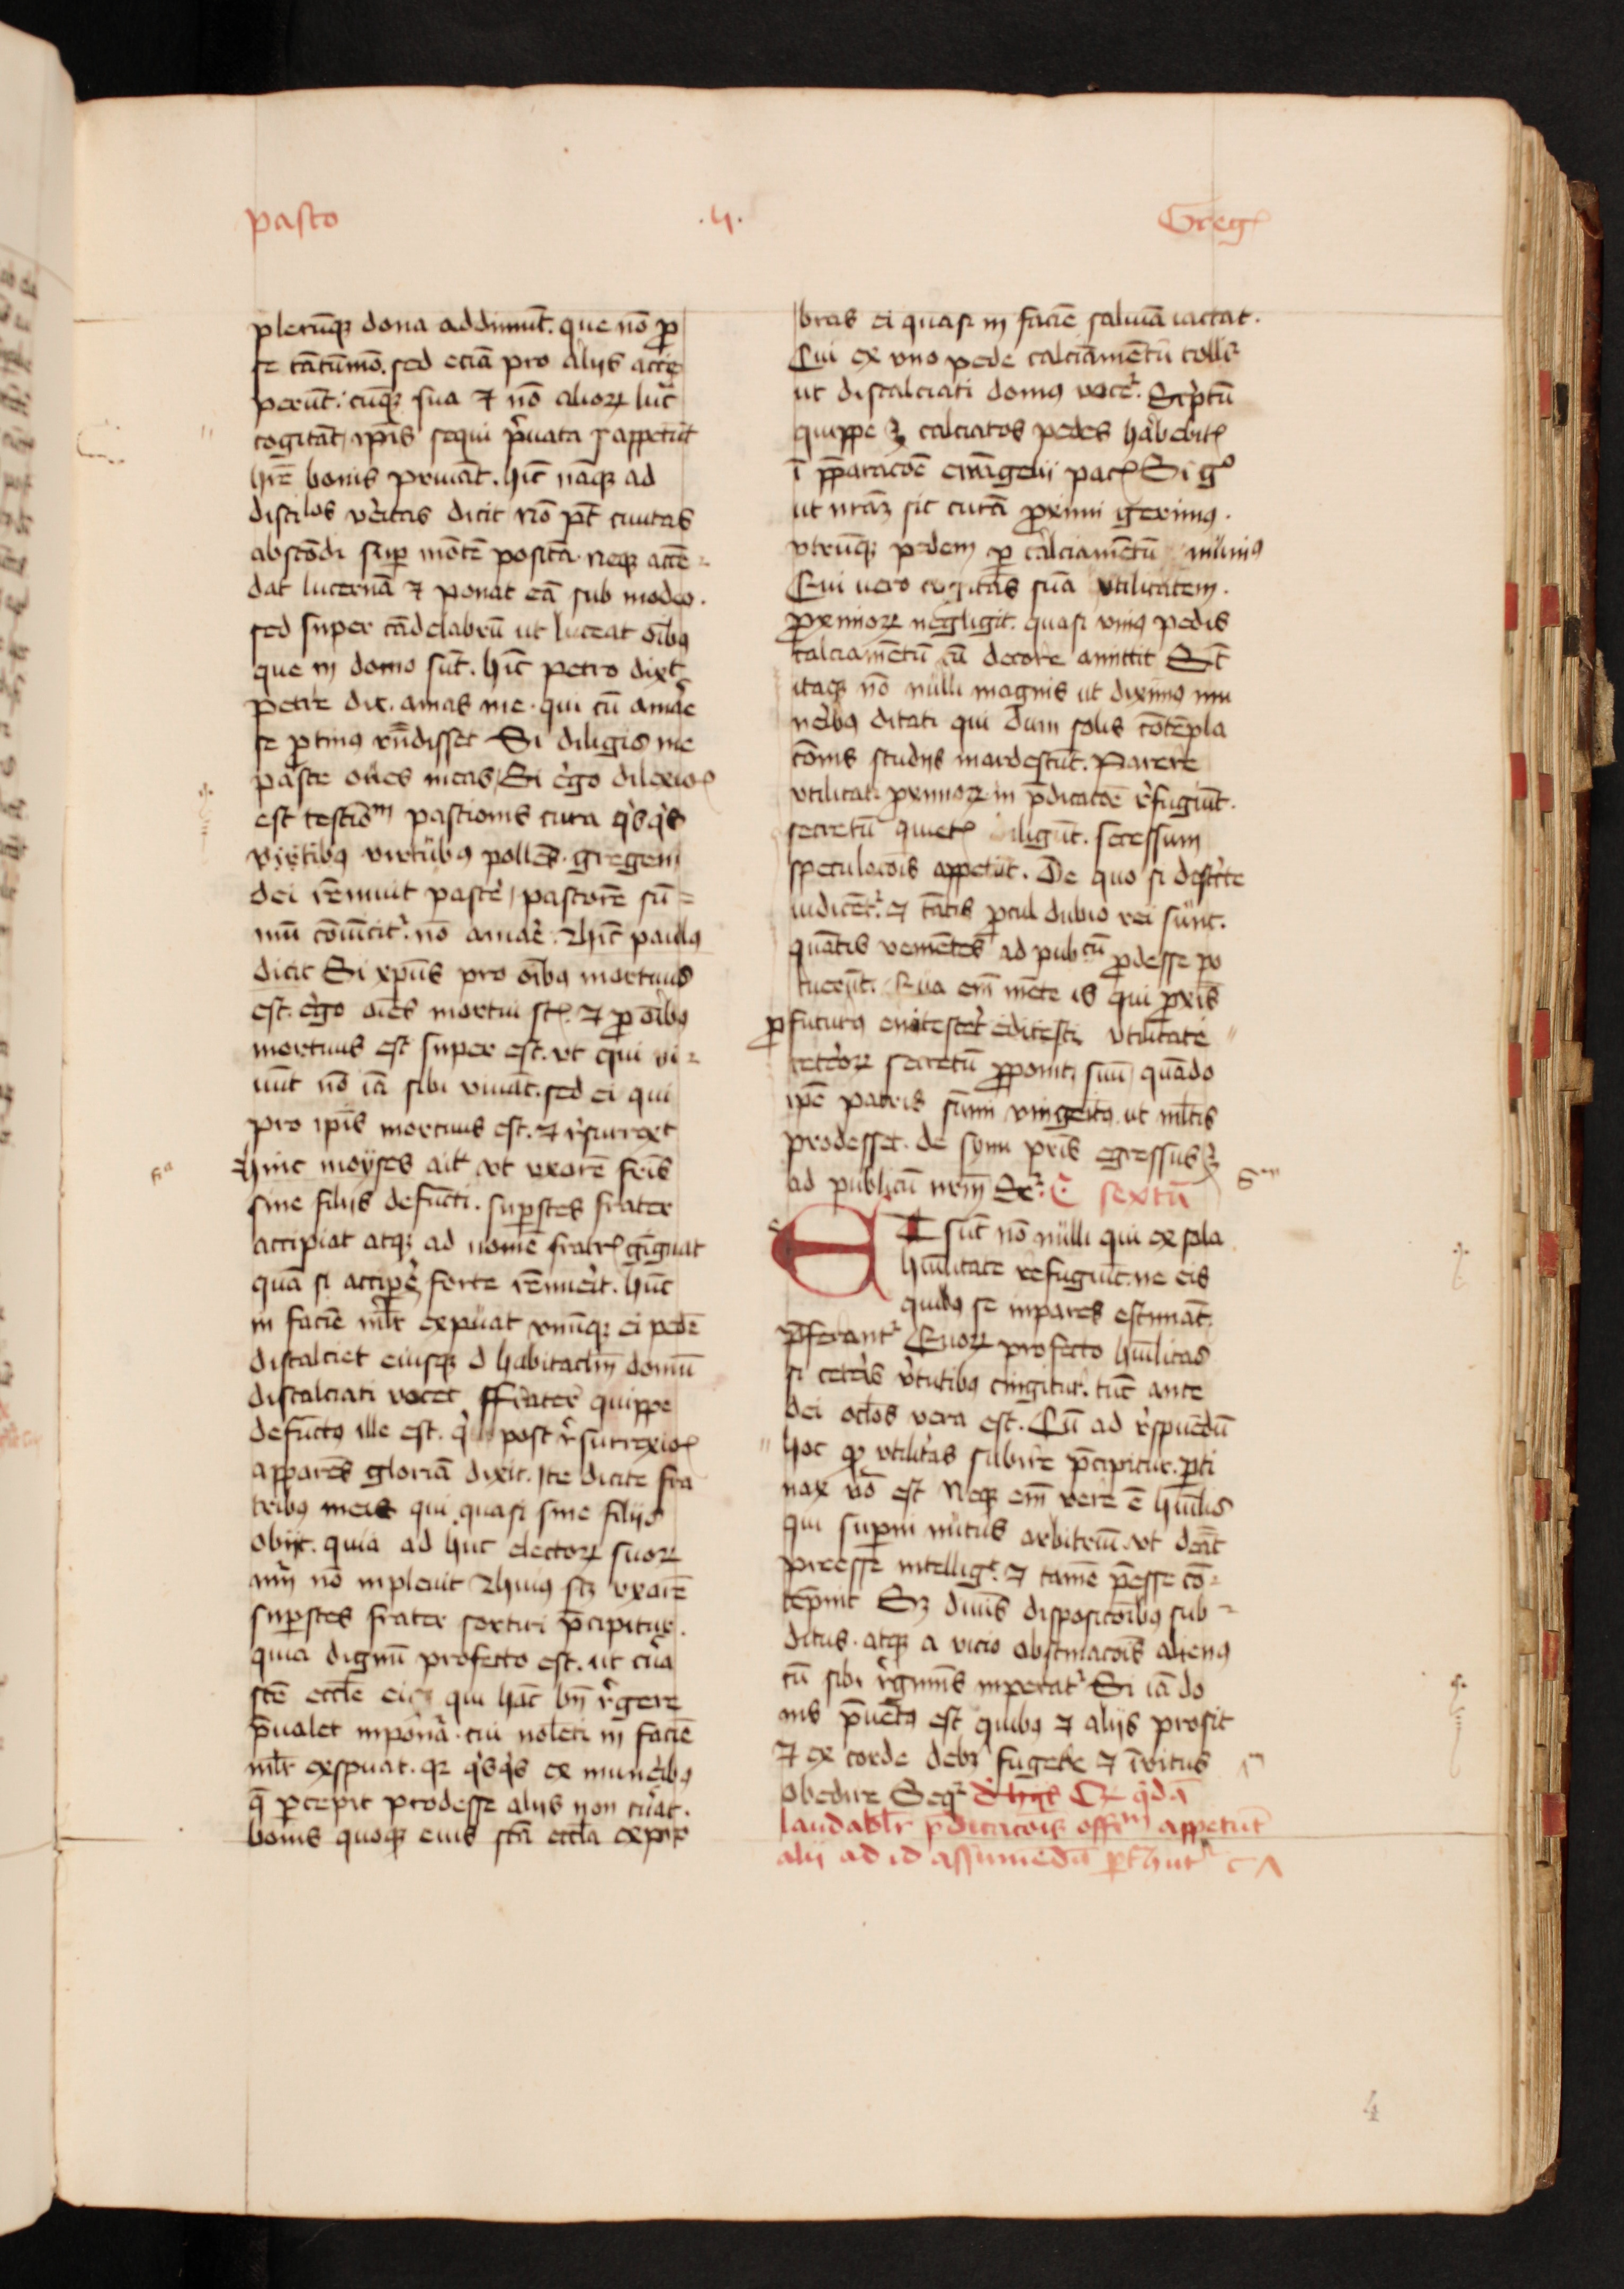 pasto
.4.
Greg
plerūqꝫ dona addimūt. que nō ꝓ
se tātūmō. sed eciā pro alijs acce
perūt. cūqꝫ sua ⁊ nō alioꝝ luc̄
cogitāt ip̄is sequi p̄uata appetūt
hr̄e bonis priuāt. hīc nāqꝫ ad
discilos v̓itas dicit nō pt̄ ciuitas
abscōdi suꝑ mōtē posita. neqꝫ accē
dat lucernā ⁊ ponat eā sub modeo.
sed super cādelabrū ut luceat oībꝯ
que in domo sūt. hīc petro dixt
petre dix. amas me. qui cū amar̄e
se ꝓtinꝯ rn̄disset Si diligis me
pasce oues meas Si ergo dilexio
est testiōm pastionis cura q̓sq̓s
virtibꝯ virtūbꝯ pollēs. gregem
dei rēnuit pasce̓ pastorē sū
mū cōuīcit᷑. nō amare̓. ⁊hīc paulꝯ
dicit Si xp̄us pro oībꝯ mortuus
est. ergo oēs mortui st. ⁊ ꝓ oībꝯ
mortuus est super est. vt qui vi
uūt nō iā sibi viuāt. sed ei qui
pro ip̄is mortuus est. ⁊ rsurrext
hinc moyses ait vt vxorē fr̄is
sine filijs defūcti. suꝑstes frater
accipiat atqꝫ ad nomē fratr gignat
quā si accipe̓ forte rēnue̓it. huīc
in faciē ml̄r expuat vnūqꝫ ei pedē
discalciet eiusqꝫ d habitaclm̄ domū
discalciati vocet ffrater quippe
defūctꝯ ille est. q̓ post rsurrexio
apparēs gloriā dixit. Ite dicite fra
tribꝯ meis qui quasi sine filijs
obijt. quia ad huc electoꝝ suoꝝ
nūm nō inpleuit ⁊huiꝯ scꝫ vxorē
suꝑstes frater sortiri p̄cipitur.
quia dignū profecto est. ut cura
scē eccl̄e ei qui hāc bn̄ rgere
p̄ualet inpona. cui nolēti in faciē
ml̄r expuat. qꝫ q̓sq̓s ex munēibꝯ
q̄ ꝑcepit prodesse alijs non curat.
bonis quoqꝫ eius scā eccl̄a expr
bras ei quasi in faciē saliuā iactat.
Cui ex vno pede calciamētū tolli᷑
ut discalciati domꝯ voce᷑. Scptū
quippe ꝫ calciatos pedes habebit
ī p̄paracōē euāgelii pac Si gͦ
ut nrāꝫ sic curā ꝓximi gerimꝯ.
vtrūqꝫ pedem ꝑ calciamētū mūimꝯ
Qui uero cogitās suā vtilitatem.
ꝓximioꝝ negligit. quasi vniꝯ pedis
calciamētū cū decore amittit St̄
itaqꝫ nō nulli magnis ut diximꝯ mu
ne̓ibꝯ ditati qui dum solis cōtēpla
cōnis studijs inardescūt. Parere
vtilitati ꝓximioꝝ in p̄dicacōē rfugiūt.
secretū quiet iligūt. secessum
speculacōis appetūt. De quo si dist̓cte
iudicēt᷑. ⁊ tātis ꝓcul dubio rei sunt.
quātis veniētes ad pubcū ꝓdesse po
tuerūt. Qua em̄ mēte is qui ꝓxīs
ꝓfuturꝯ enitesce̓t editesci vtilitate
cetēoꝝ secretū ꝓponit suū quādo
ip̄e patris sūmi vnigeitꝯ ut ml̄tis
prodesset. de synu pr̄is egressus ꝫ
ad publicū nrm̄ Se᷑. C sextū
ET sūt nō nulli qui ex sola
huīlitate refugiūt. ne eis
quibꝯ se inpares estimāt.
p̄ferant᷑ Quoꝝ profecto huīlitas
si cete̓is v̓tutibꝯ cingitur. tūc ante
dei oclōs vera est. Cū ad rspuēdū
hoc qͣ vtilit̓as subire p̄cipitur. ꝑti
nax nō est Neqꝫ em̄ vere ē huīlis
qui suꝑni nutus arbitriū vt deāt
preesse intelligt. ⁊ tamē p̄esse cō
tēpnit Sꝫ diuīs disposicōībꝯ sub
ditus. atqꝫ a vicio obstinacōis alienꝯ
cū sibi rgimīs inperat᷑ Si iā do
nis p̄uētꝯ est quibꝯ ⁊ alijs prosit
⁊ ex corde debꝫ fugere ⁊ īvitus
obedire Seq᷑ Qꝫ q̄dā
laudablr̄ p̄dicacōis offm̄ appetūt
alij ad id assumēdū ꝑt̄hūt᷑ c
4